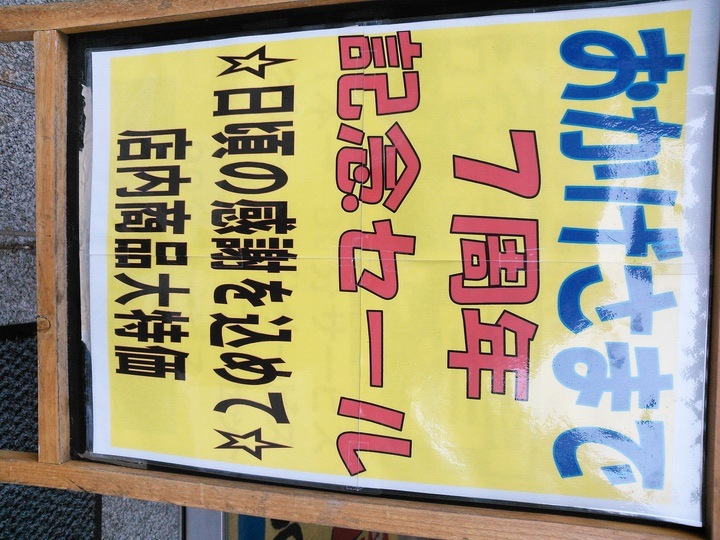 おかげさまで
7周年
記念セール
☆日頃の感謝を込めて☆
店内商品大特価